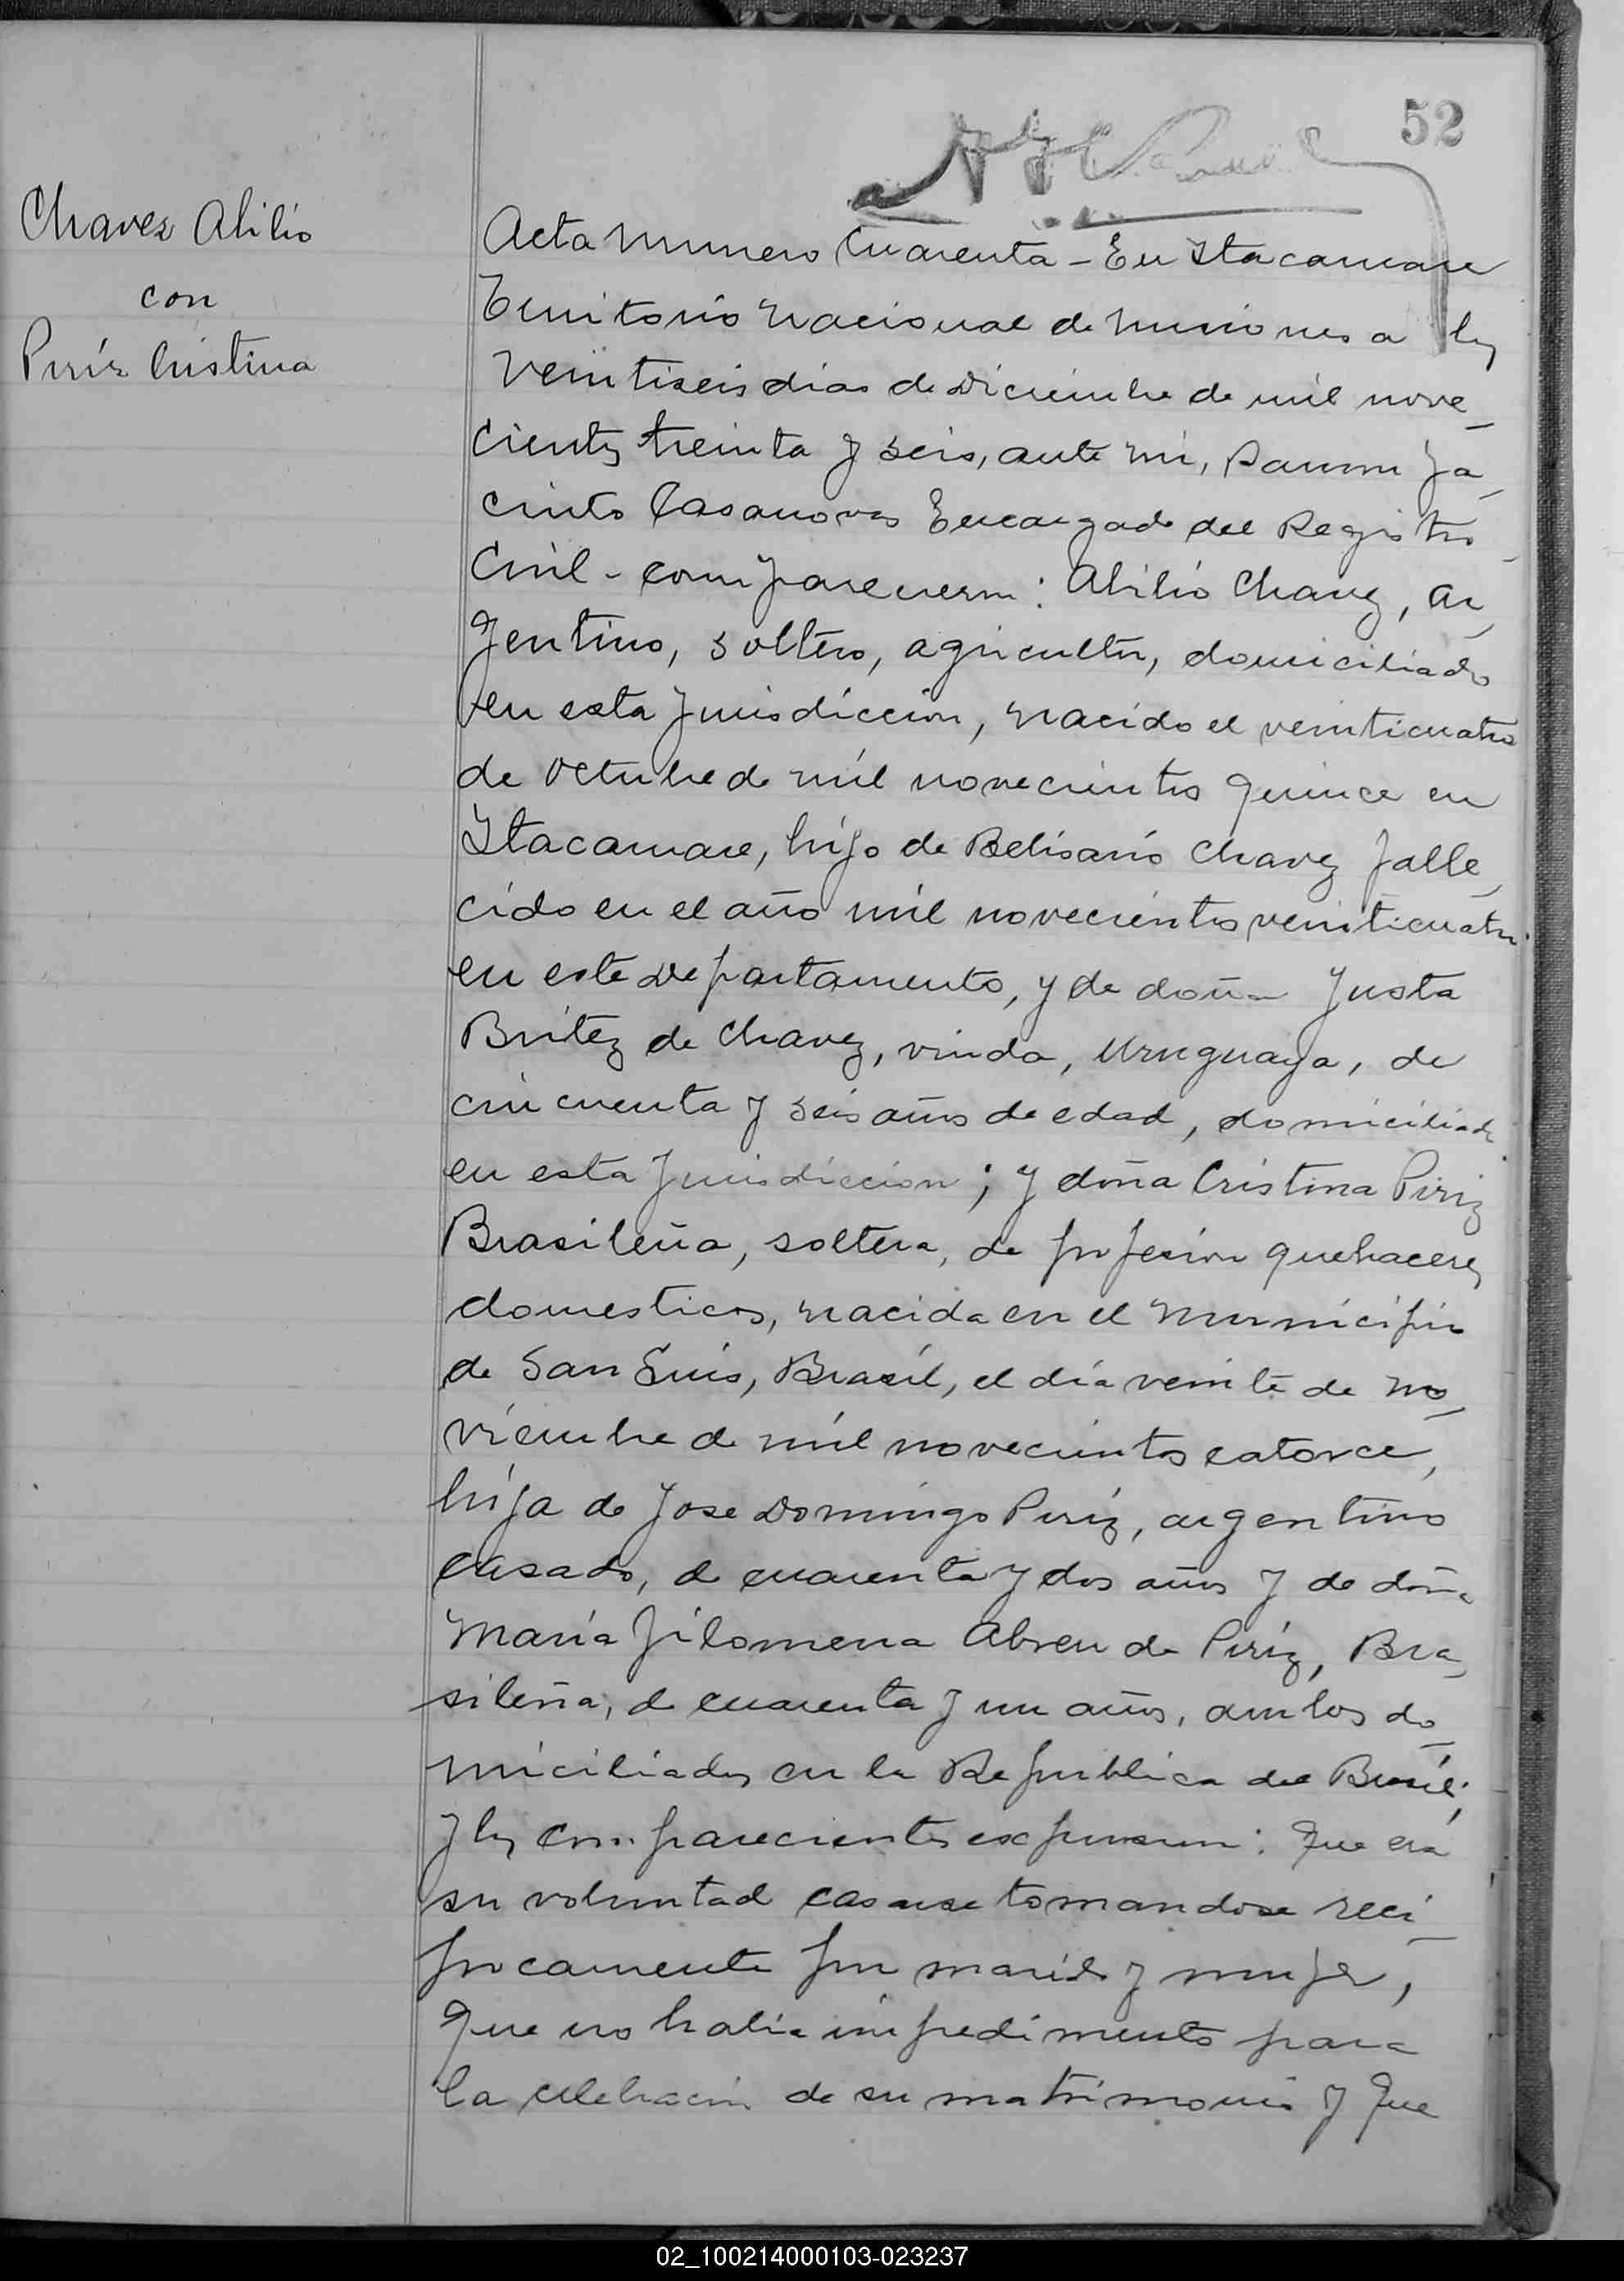 52
Chavez Abilio
con
Piríz Cristina
Acta numero Cuarenta - En Itacaruare
Territorio nacional de Misiones a los
Veintiseis dias de Diciembre de mil nove_
cientos treinta y seis, ante mi, Ramon Ja_
cinto Casanovas Encargado del Registro
Civil - comparecieron: Abilio Chavez, ar_
gentino, soltero, agricultor, domiciliado
en esta jurisdiccion, nacido el veinticuatro
de octubre de mil novecientos quince en
Itacaruare, hijo de Belisario Chavez falle_
cido en el año mil novecientos veinticuatro
en este Departamento, y de doña Justa
Britez de Chavez, viuda, Uruguaya, de
cincuenta y seis años de edad, domiciliada
en esta jurisdiccion; y doña Cristina Piriz
Brasileña, soltera, de profesion quehaceres
domesticos, nacida en el municipio
de San Luis, Brasil, el día veinte de no_
viembre de mil novecientos catorce,
hija de Jose Domingo Piriz, argentino
casado, de cuarenta y dos años y de doña
María Filomena Abreu de Piríz, Bra_
sileña, de cuarenta y un años, ambos do_
miciliados en la Republica del Brasil;
y los comparecientes expusieron: Que era
su voluntad casarse tomandose reci_
procamente por marido y mujer,
que no habia impedimento para
la celebracion de su matrimonio y que
02_100214000103-023237